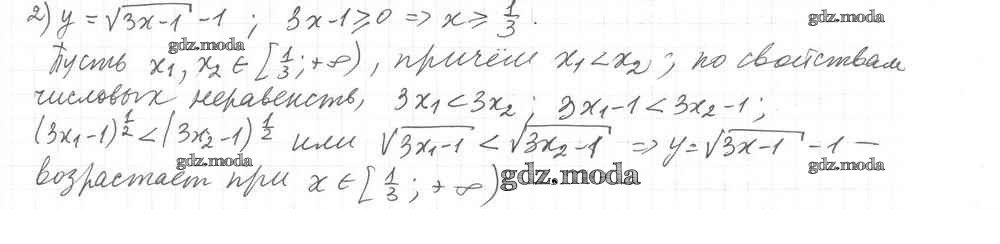 2) y = √(3x-1) - 1 ; 3x-1 ≥ 0 => x ≥ 1/3 . gdz.moda
gdz.moda
Пусть x₁, x₂ ∈ [1/3; +∞), причём x₁ < x₂ ; по свойствам
числовых неравенств, 3x₁ < 3x₂ ; 3x₁-1 < 3x₂-1 ;
(3x₁-1)^(1/2) < (3x₂-1)^(1/2) или √(3x₁-1) < √(3x₂-1) => y = √(3x-1) - 1 —
gdz.moda gdz.moda
возрастает при x ∈ [1/3; +∞) gdz.moda